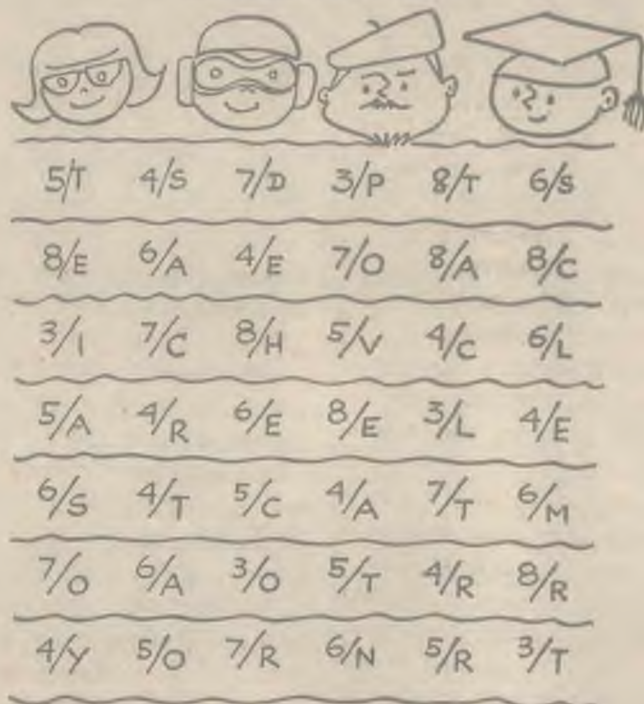 5/T 4/S 7/D 3/P 8/T 6/S
8/E 6/A 4/E 7/O 8/A 8/C
3/I 7/C 8/H 5/V 4/C 6/L
5/A 4/R 6/E 8/E 3/L 4/E
6/S 4/T 5/C 4/A 7/T 6/M
7/O 6/A 3/O 5/T 4/R 8/R
4/Y 5/O 7/R 6/N 5/R 3/T